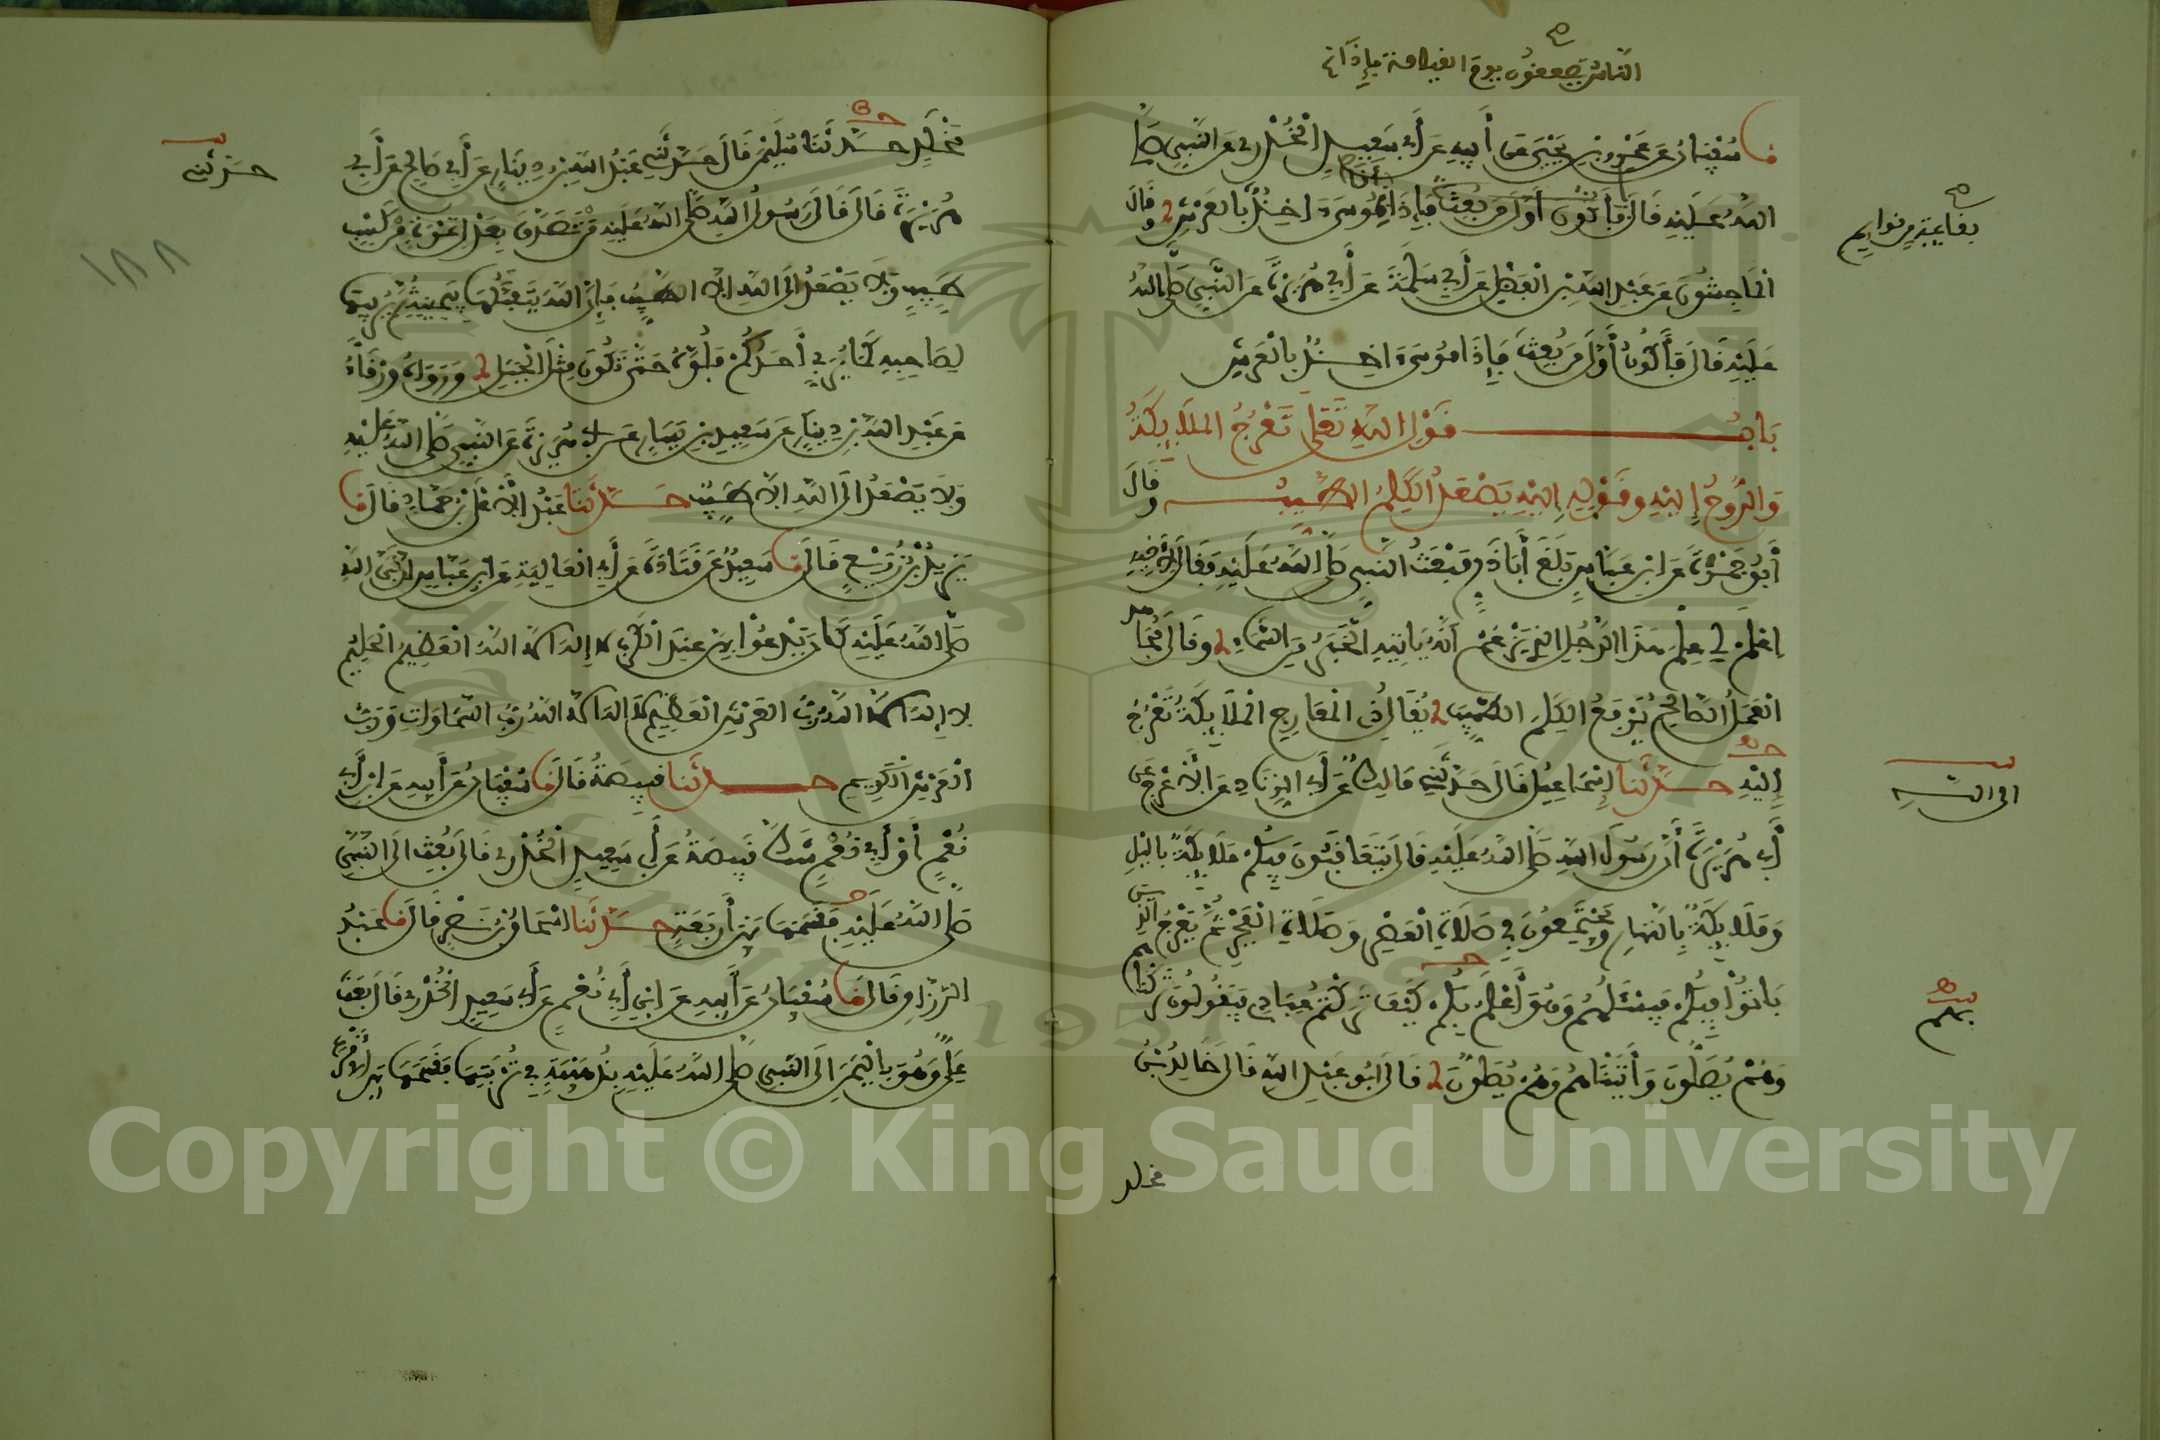 الناس يصعقون يوم القيامة فإذا أنا
نا سفيان عن عمرو بن يحيى عن أبيه عن أبي سعيد الخدري عن النبي صلى
الله عليه قال فأكون أول من بعث فإذا موسى آخذ بالعرش وقال
الماجشون عن عبد الله بن الفضل عن أبي سلمة عن أبي هريرة عن النبي صلى الله
عليه قال فأكون أول من بعث فإذا موسى آخذ بالعرش
باب قول الله تعلى تعرج الملايكة
والروح إليه وقوله إليه يصعد الكلم الطيب وقال
أبو جمرة عن ابن عباس بلغ أبا ذر مبعث النبي صلى الله عليه فقال لأخيه
اعلم لي علم هذا الرجل الذي يزعم أنه ياتيه الخبر من السماء وقال مجاهد
العمل الصالح يرفع الكلم الطيب يقال ذي المعارج الملايكة تعرج
إليه حدثنا إسماعيل قال حدثني مالك عن أبي الزناد عن الأعرج عن
أبي هريرة أن رسول الله صلى الله عليه قال يتعاقبون فيكم ملايكة بالليل
وملايكة بالنهار ويجتمعون في صلاة العصر وصلاة الفجر ثم يعرج الذين
باتوا فيكم فيسئلهم وهو أعلم بكم كيف تركتم عبادي فيقولون تركناهم
وهم يصلون وأتيناهم وهم يصلون قال أبو عبد الله قال خالد بن
مخلد
بقايمة من قوايم
الى الله
بهم
مخلد حدثنا سليمن قال حدثني عبد الله بن دينار عن أبي صالح عن أبي
هريرة قال قال رسول الله صلى الله عليه من تصدق بعدل تمرة من كسب
طيب ولا يصعد الى الله الا الطيب فإن الله يتقبلها بيمينه ثم يربيها
لصاحبه كما يربي أحدكم فلوه حتى تكون مثل الجبل ورواه ورقاء
عن عبد الله بن دينار عن سعيد بن يسار عن أبي هريرة عن النبي صلى الله عليه
ولا يصعد الى الله الا طيب حدثنا عبد الأعلى بن حماد قال نا
يزيد بن زريع قال نا سعيد عن قتادة عن أبي العالية عن ابن عباس أن نبي الله
صلى الله عليه كان يدعوا بهن عند الكرب لا إله الا الله العظيم الحليم
لا إله الا الله رب العرش العظيم لا اله الا الله رب السماوات ورب
العرش الكريم حدثنا قبيصة قال نا سفيان عن أبيه عن ابن أبي
نعم أو أبي نعم شك قبيصة عن أبي سعيد الخدري قال بعث الى النبي
صلى الله عليه فقسمها بين أربعة حدثنا اسحاق بن نصر قال نا عبد
الرزاق قال نا سفيان عن أبيه عن ابن أبي نعم عن أبي سعيد الخدري قال بعث
علي وهو باليمن الى النبي صلى الله عليه بذهيبة في تربتها فقسمها بين الأقرع
حدثني
١٨٨
Copyright © King Saud University
1957